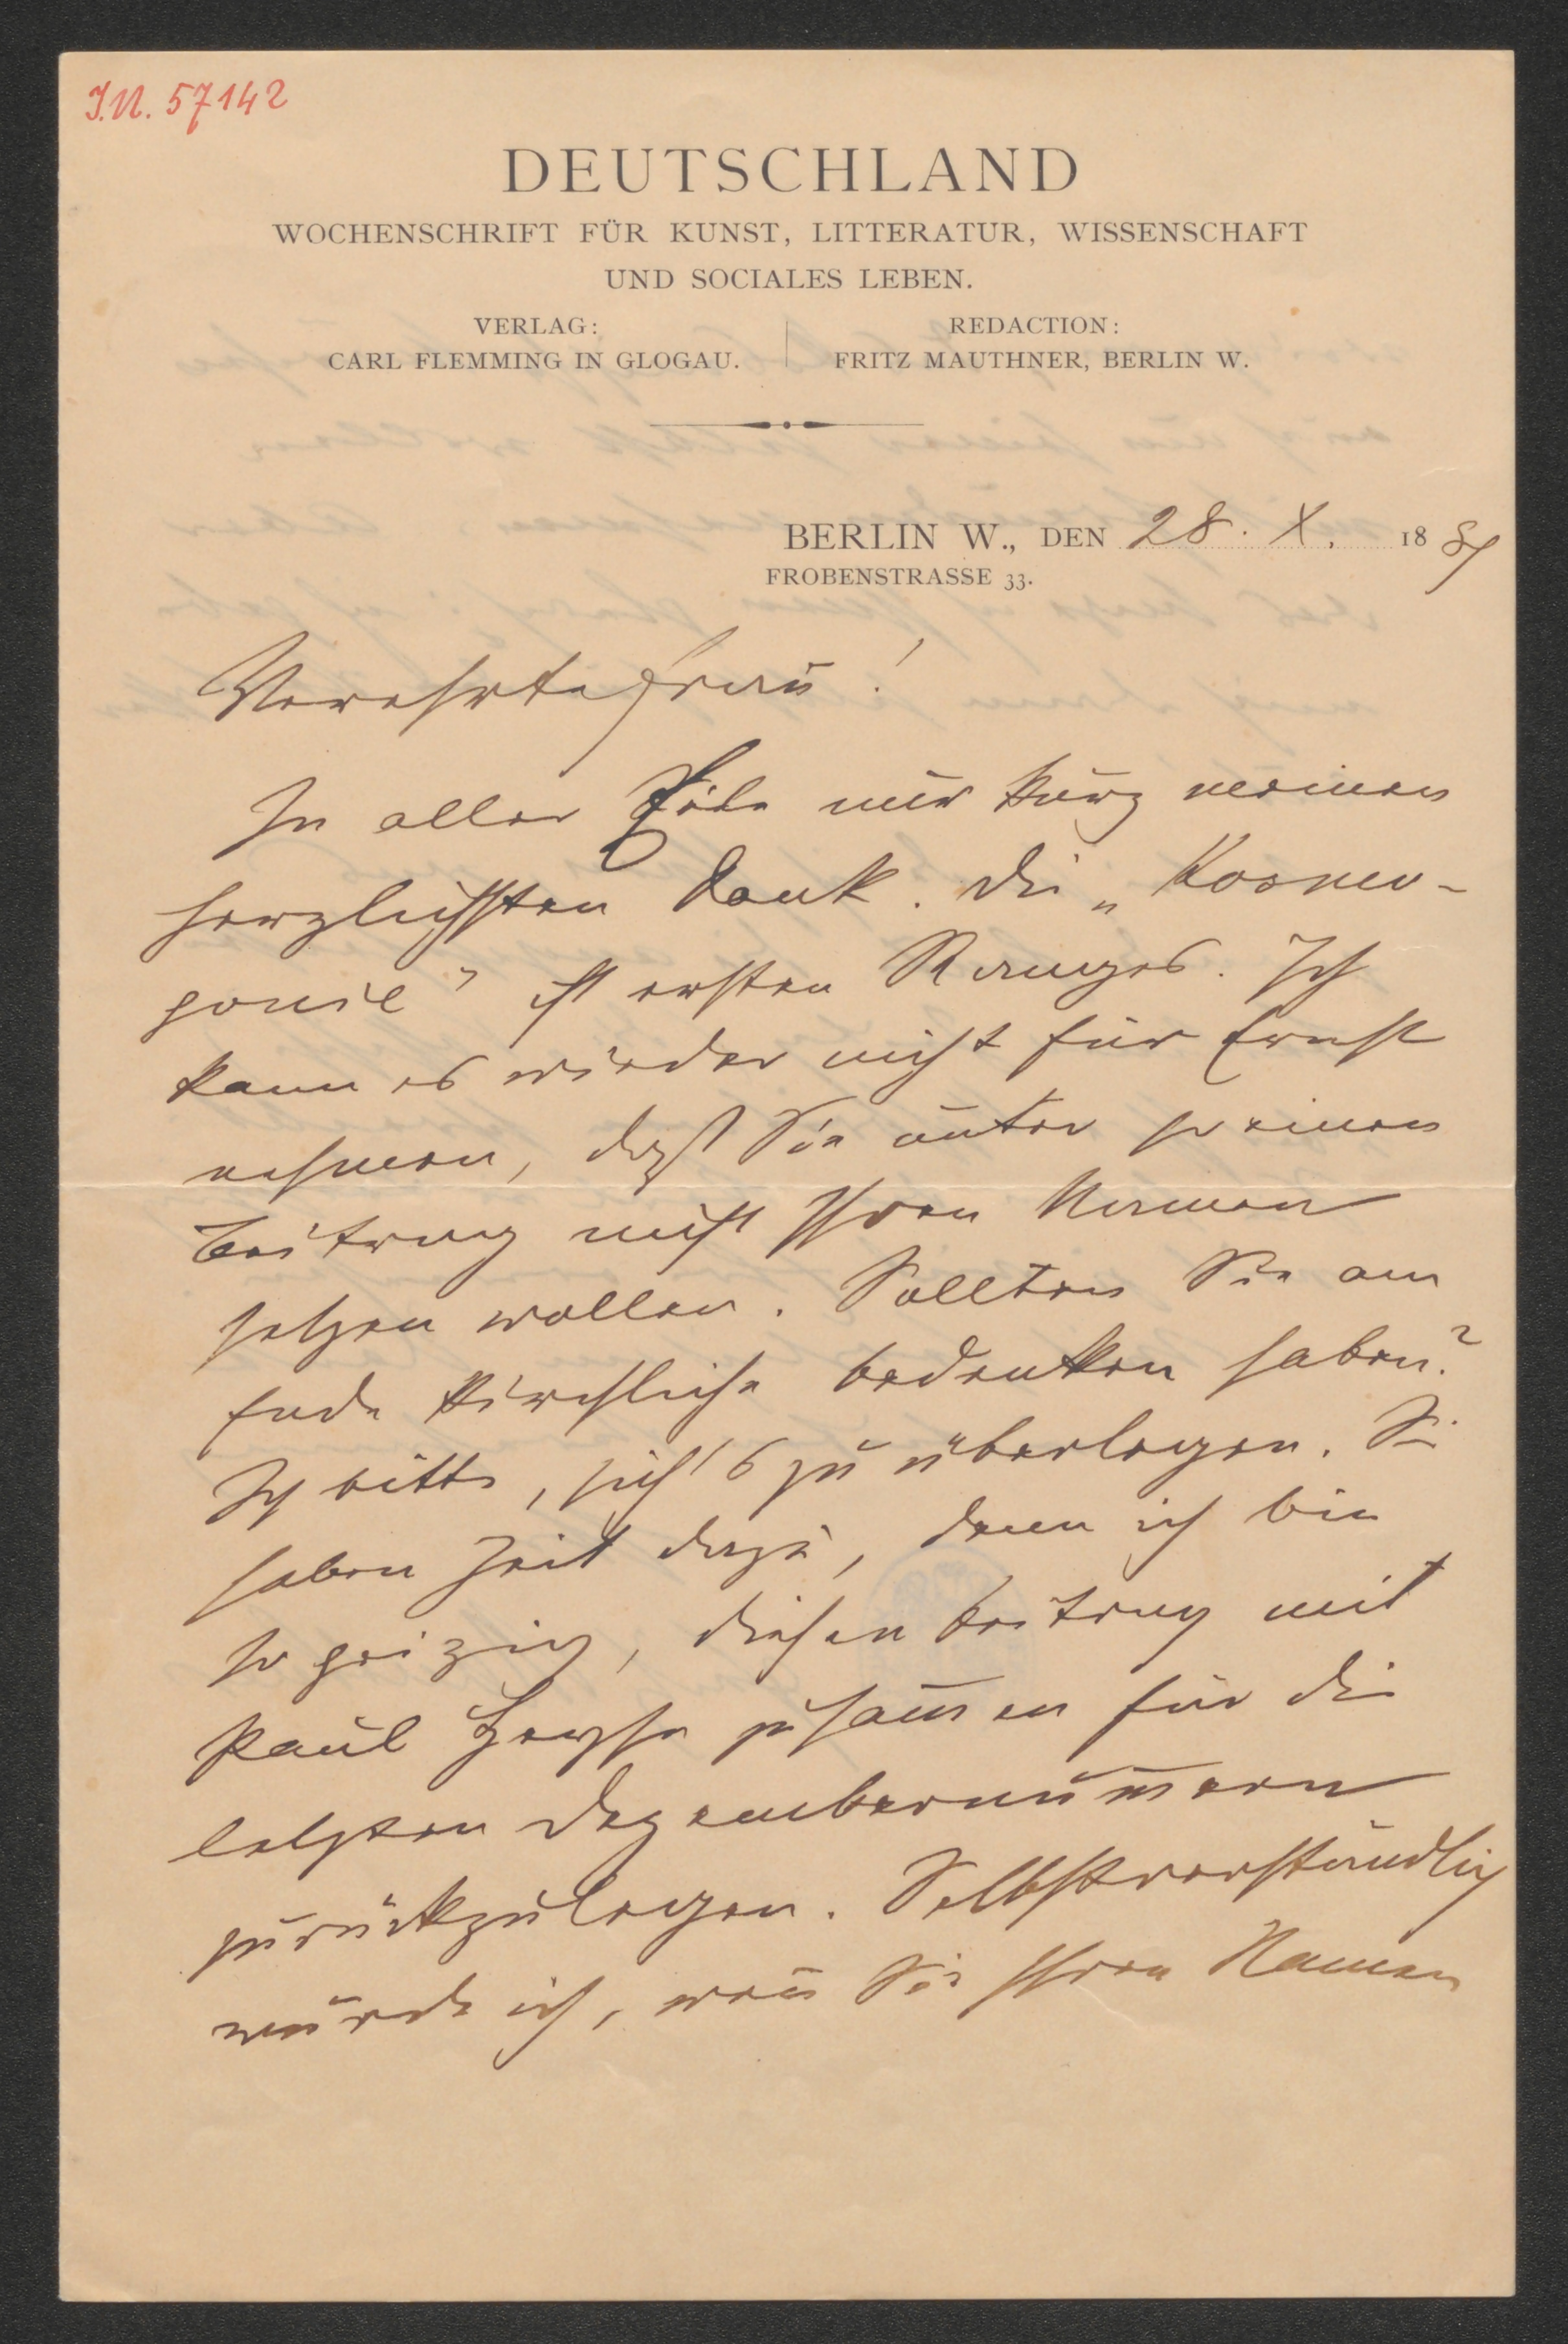 I.N. 57142
DEUTSCHLAND
WOCHENSCHRIFT FÜR KUNST, LITTERATUR, WISSENSCHAFT
UND SOCIALES LEBEN.
VERLAG:
CARL FLEMMING IN GLOGAU.
REDACTION:
FRITZ MAUTHNER, BERLIN W.
BERLIN W., DEN 28. X. 1889
FROBENSTRASSE 33.
Verehrte Frau!
In aller Eile nur kurz meinen
herzlichsten Dank. Die „Kosmo-
gonie" ist ersten Ranges. Ich
kann es wieder nicht für Ernst
nehmen, daß Sie unter so einen
Beitrag nicht Ihren Namen
setzen wollen. Sollten Sie am
Ende kirchliche Bedenken haben?
Ich bitte, sich's zu überlegen. Sie
haben Zeit dazu, denn ich bin
so geizig, diesen Beitrag mit
Paul Heyse zusam̅en für die
letzten Dezembernum̅ern
zurückzulegen. Selbstverständlich
würde ich, wen̅ Sie Ihren Namen